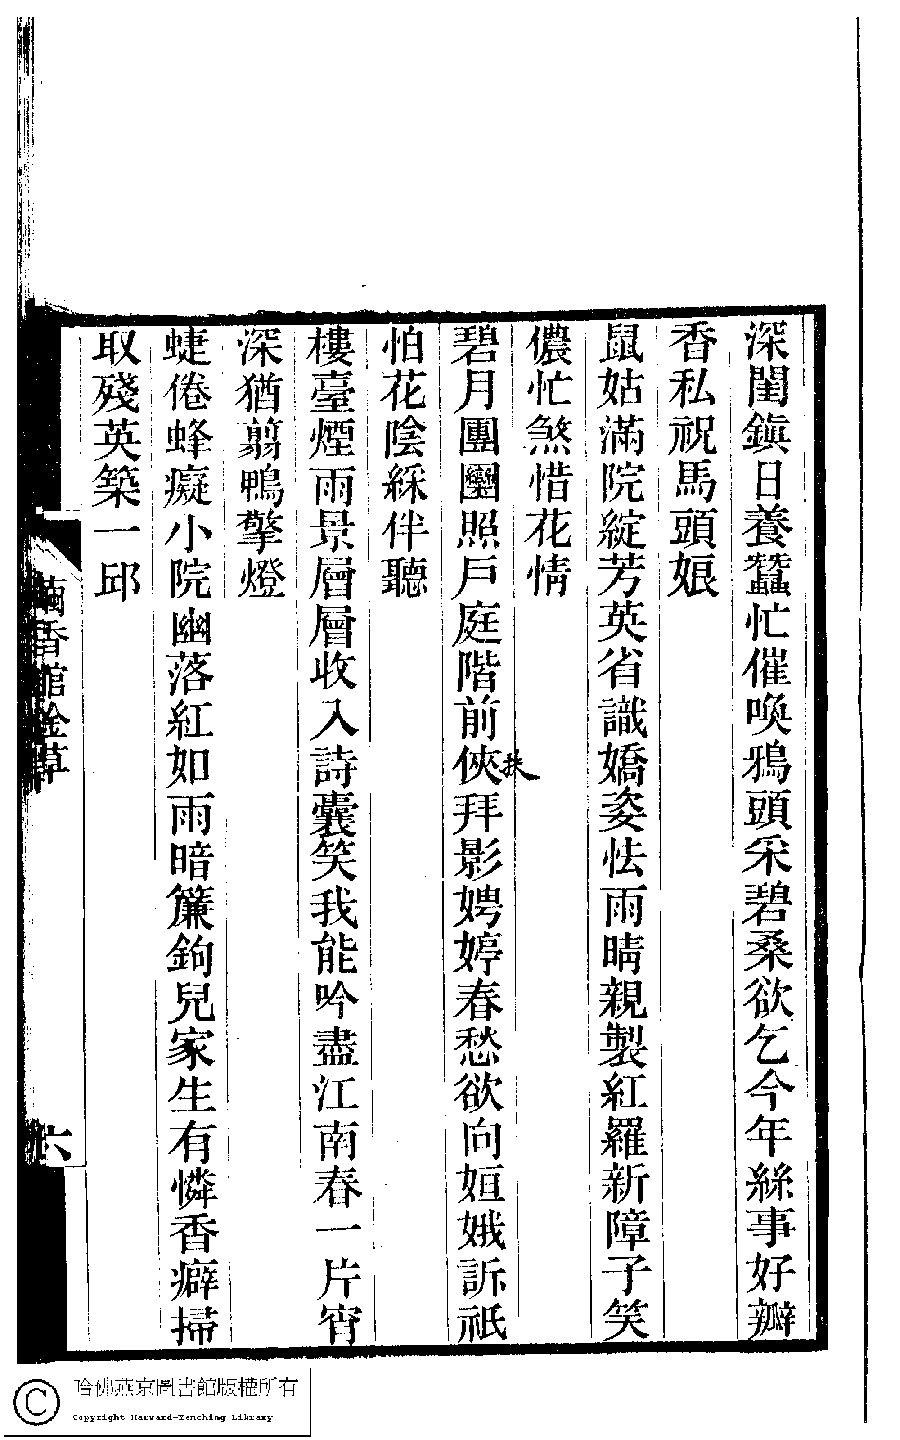 深閨鎭日養蠶忙催喚鴉頭采碧桑欲乞今年絲事好瓣
香私祝馬頭娘
鼠姑滿院綻芳英省識嬌姿怯雨晴親製紅羅新障子笑
儂忙煞惜花情
碧月團圞照戶庭階前俠拜影娉婷春愁欲向姮娥訴祇
扶
怕花陰綵伴聽
樓臺煙雨景層層收入詩囊笑我能吟盡江南春一片宵
深猶翦鴨擎燈
蜨倦蜂癡小院幽落紅如雨暗簾鉤兒家生有憐香癖掃
取殘英築一邱
香館
草
六
哈佛燕京圖書館版權所有
Copyright Harvard-Yenching Library